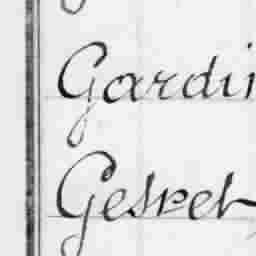 Gardi
Gespet